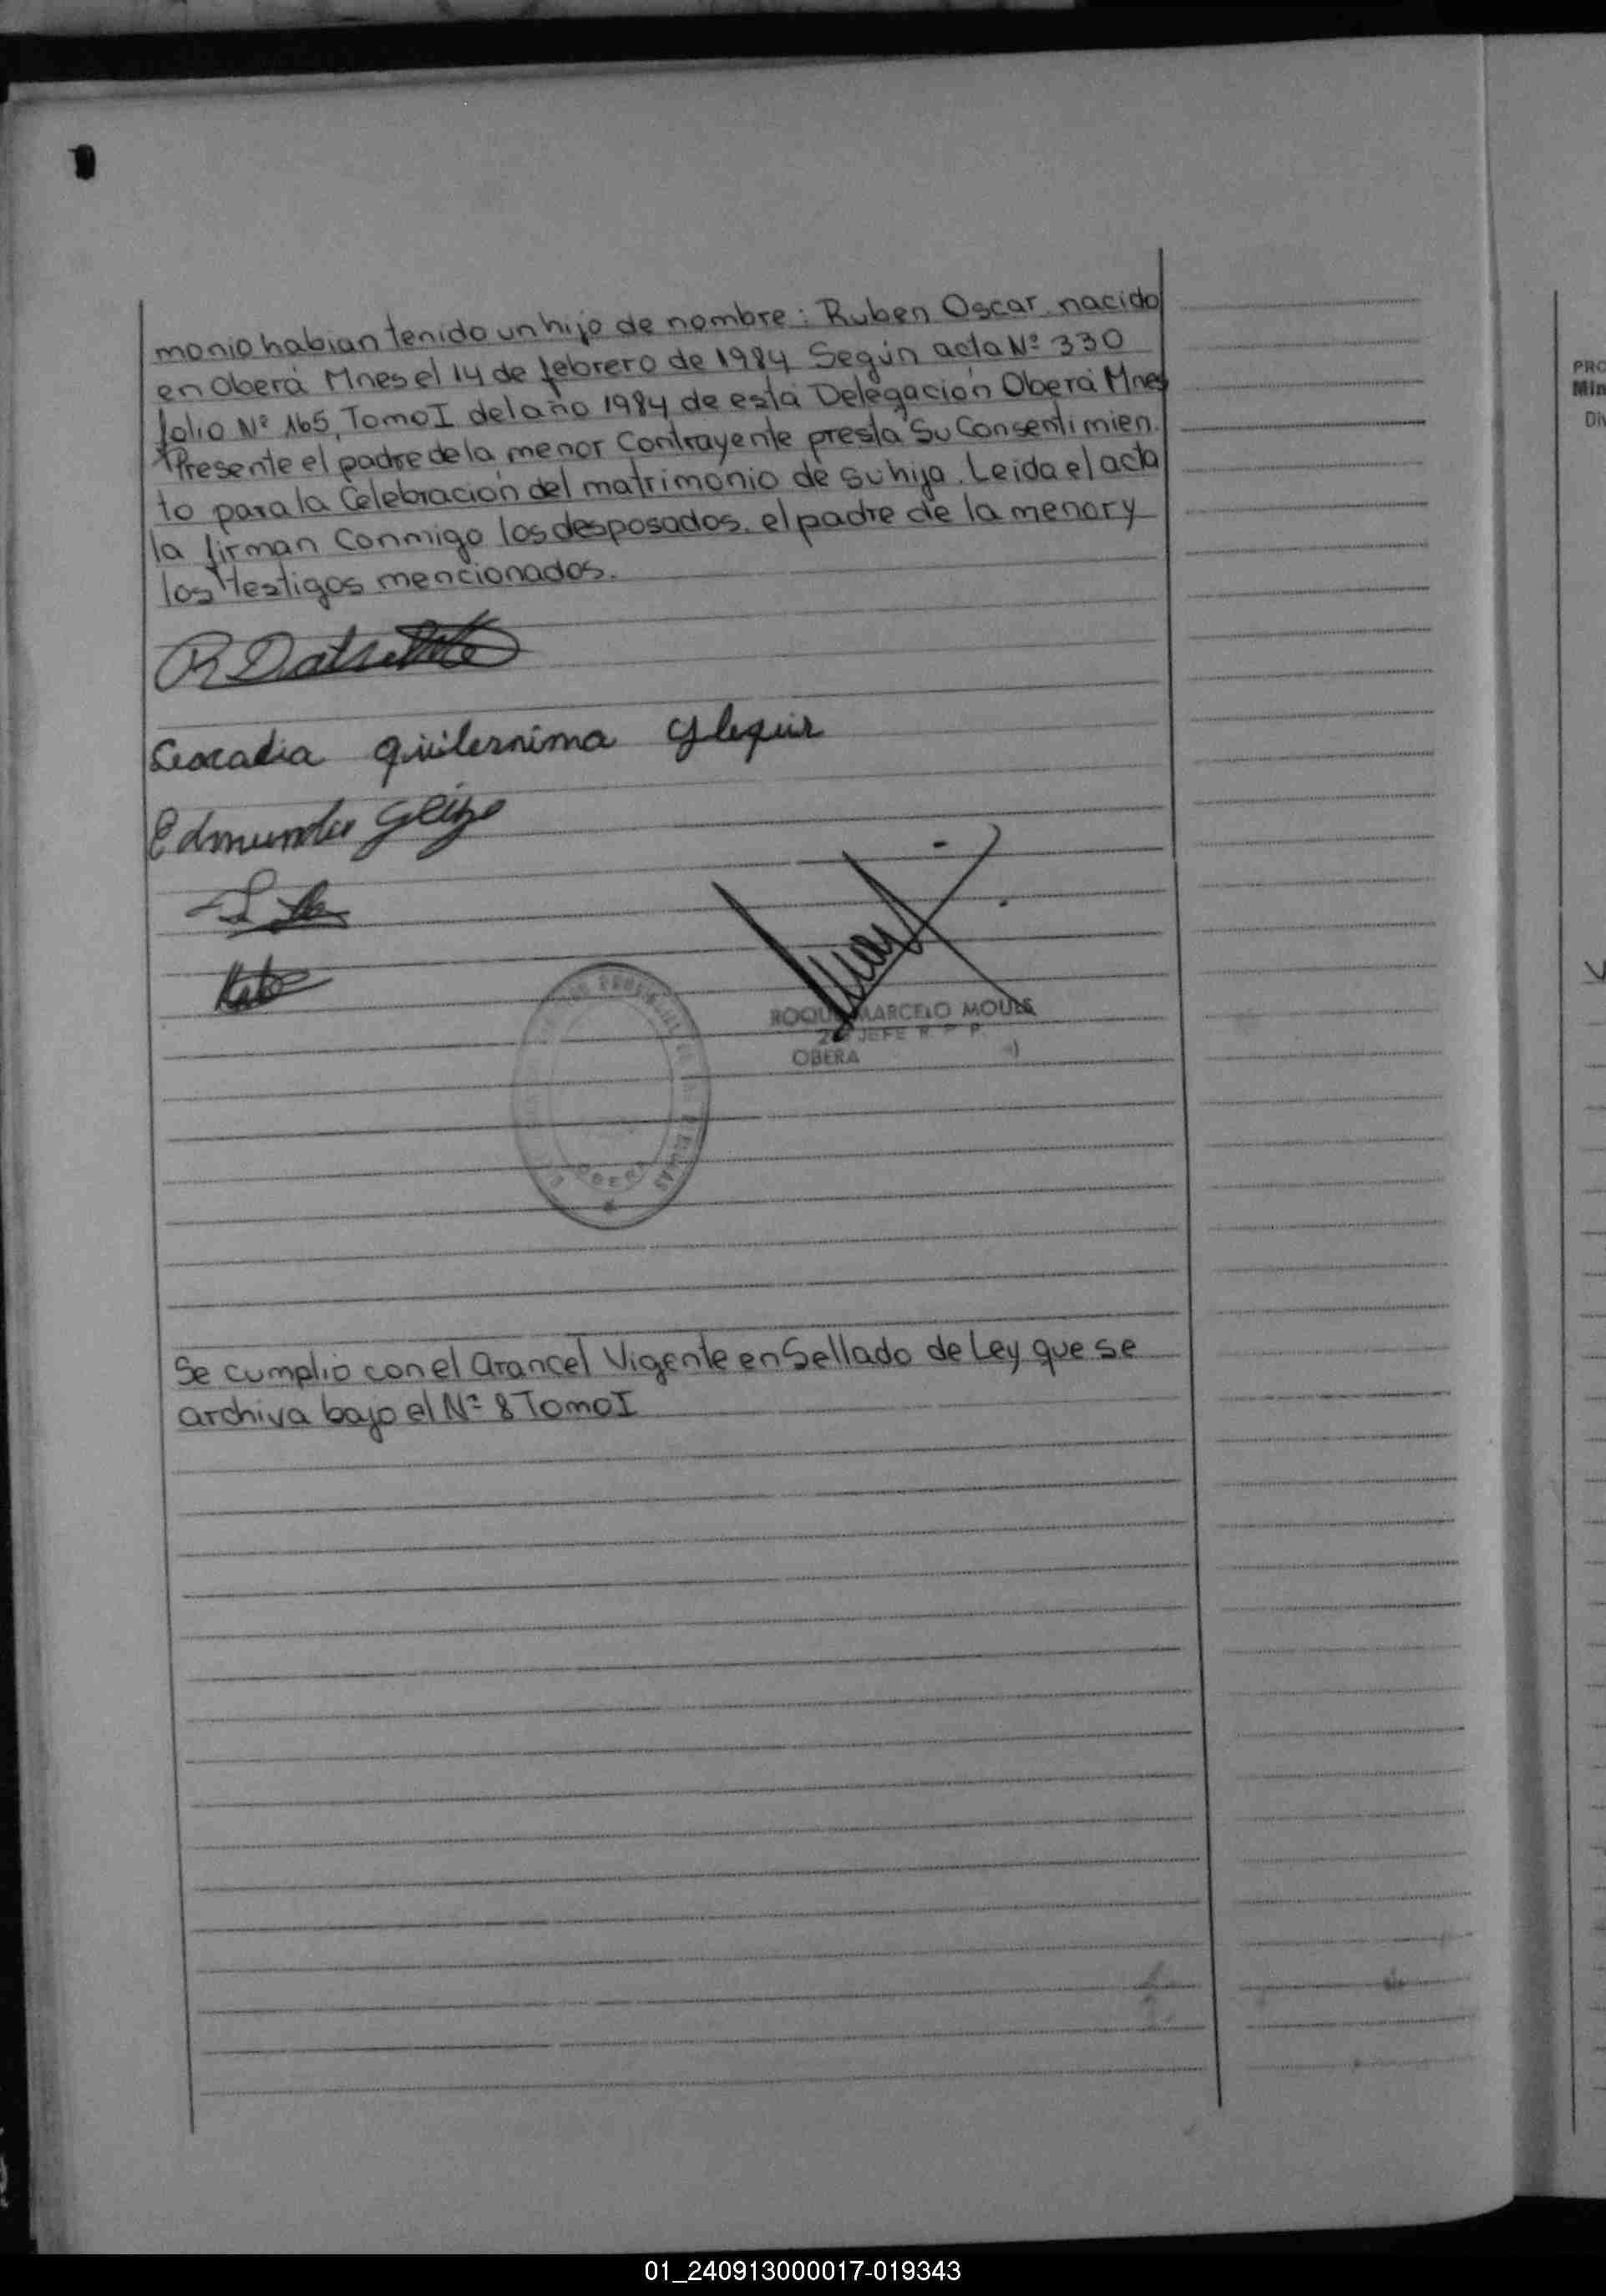 monio habian tenido un hijo de nombre: Ruben Oscar nacido
en Oberá Mnes el 14 de febrero de 1984 Según acta Nº 330
folio Nº 165, Tomo I del año 1984 de esta Delegación Oberá Mnes
Presente el padre de la menor Contrayente presta Su Consentimien
to para la Celebración del matrimonio de su hija. Leida el acta
la firman Conmigo los desposados, el padre de la menor y
los testigos mencionados.
Leocadia
Edmundo
ROQUE MARCELO MOULE
2º JEFE R. P. P.
OBERA
OBERA
Se cumplio con el Arancel Vigente en Sellado de Ley que se
archiva bajo el Nº 8 Tomo I
PRO
Min
Div
01_240913000017-019343